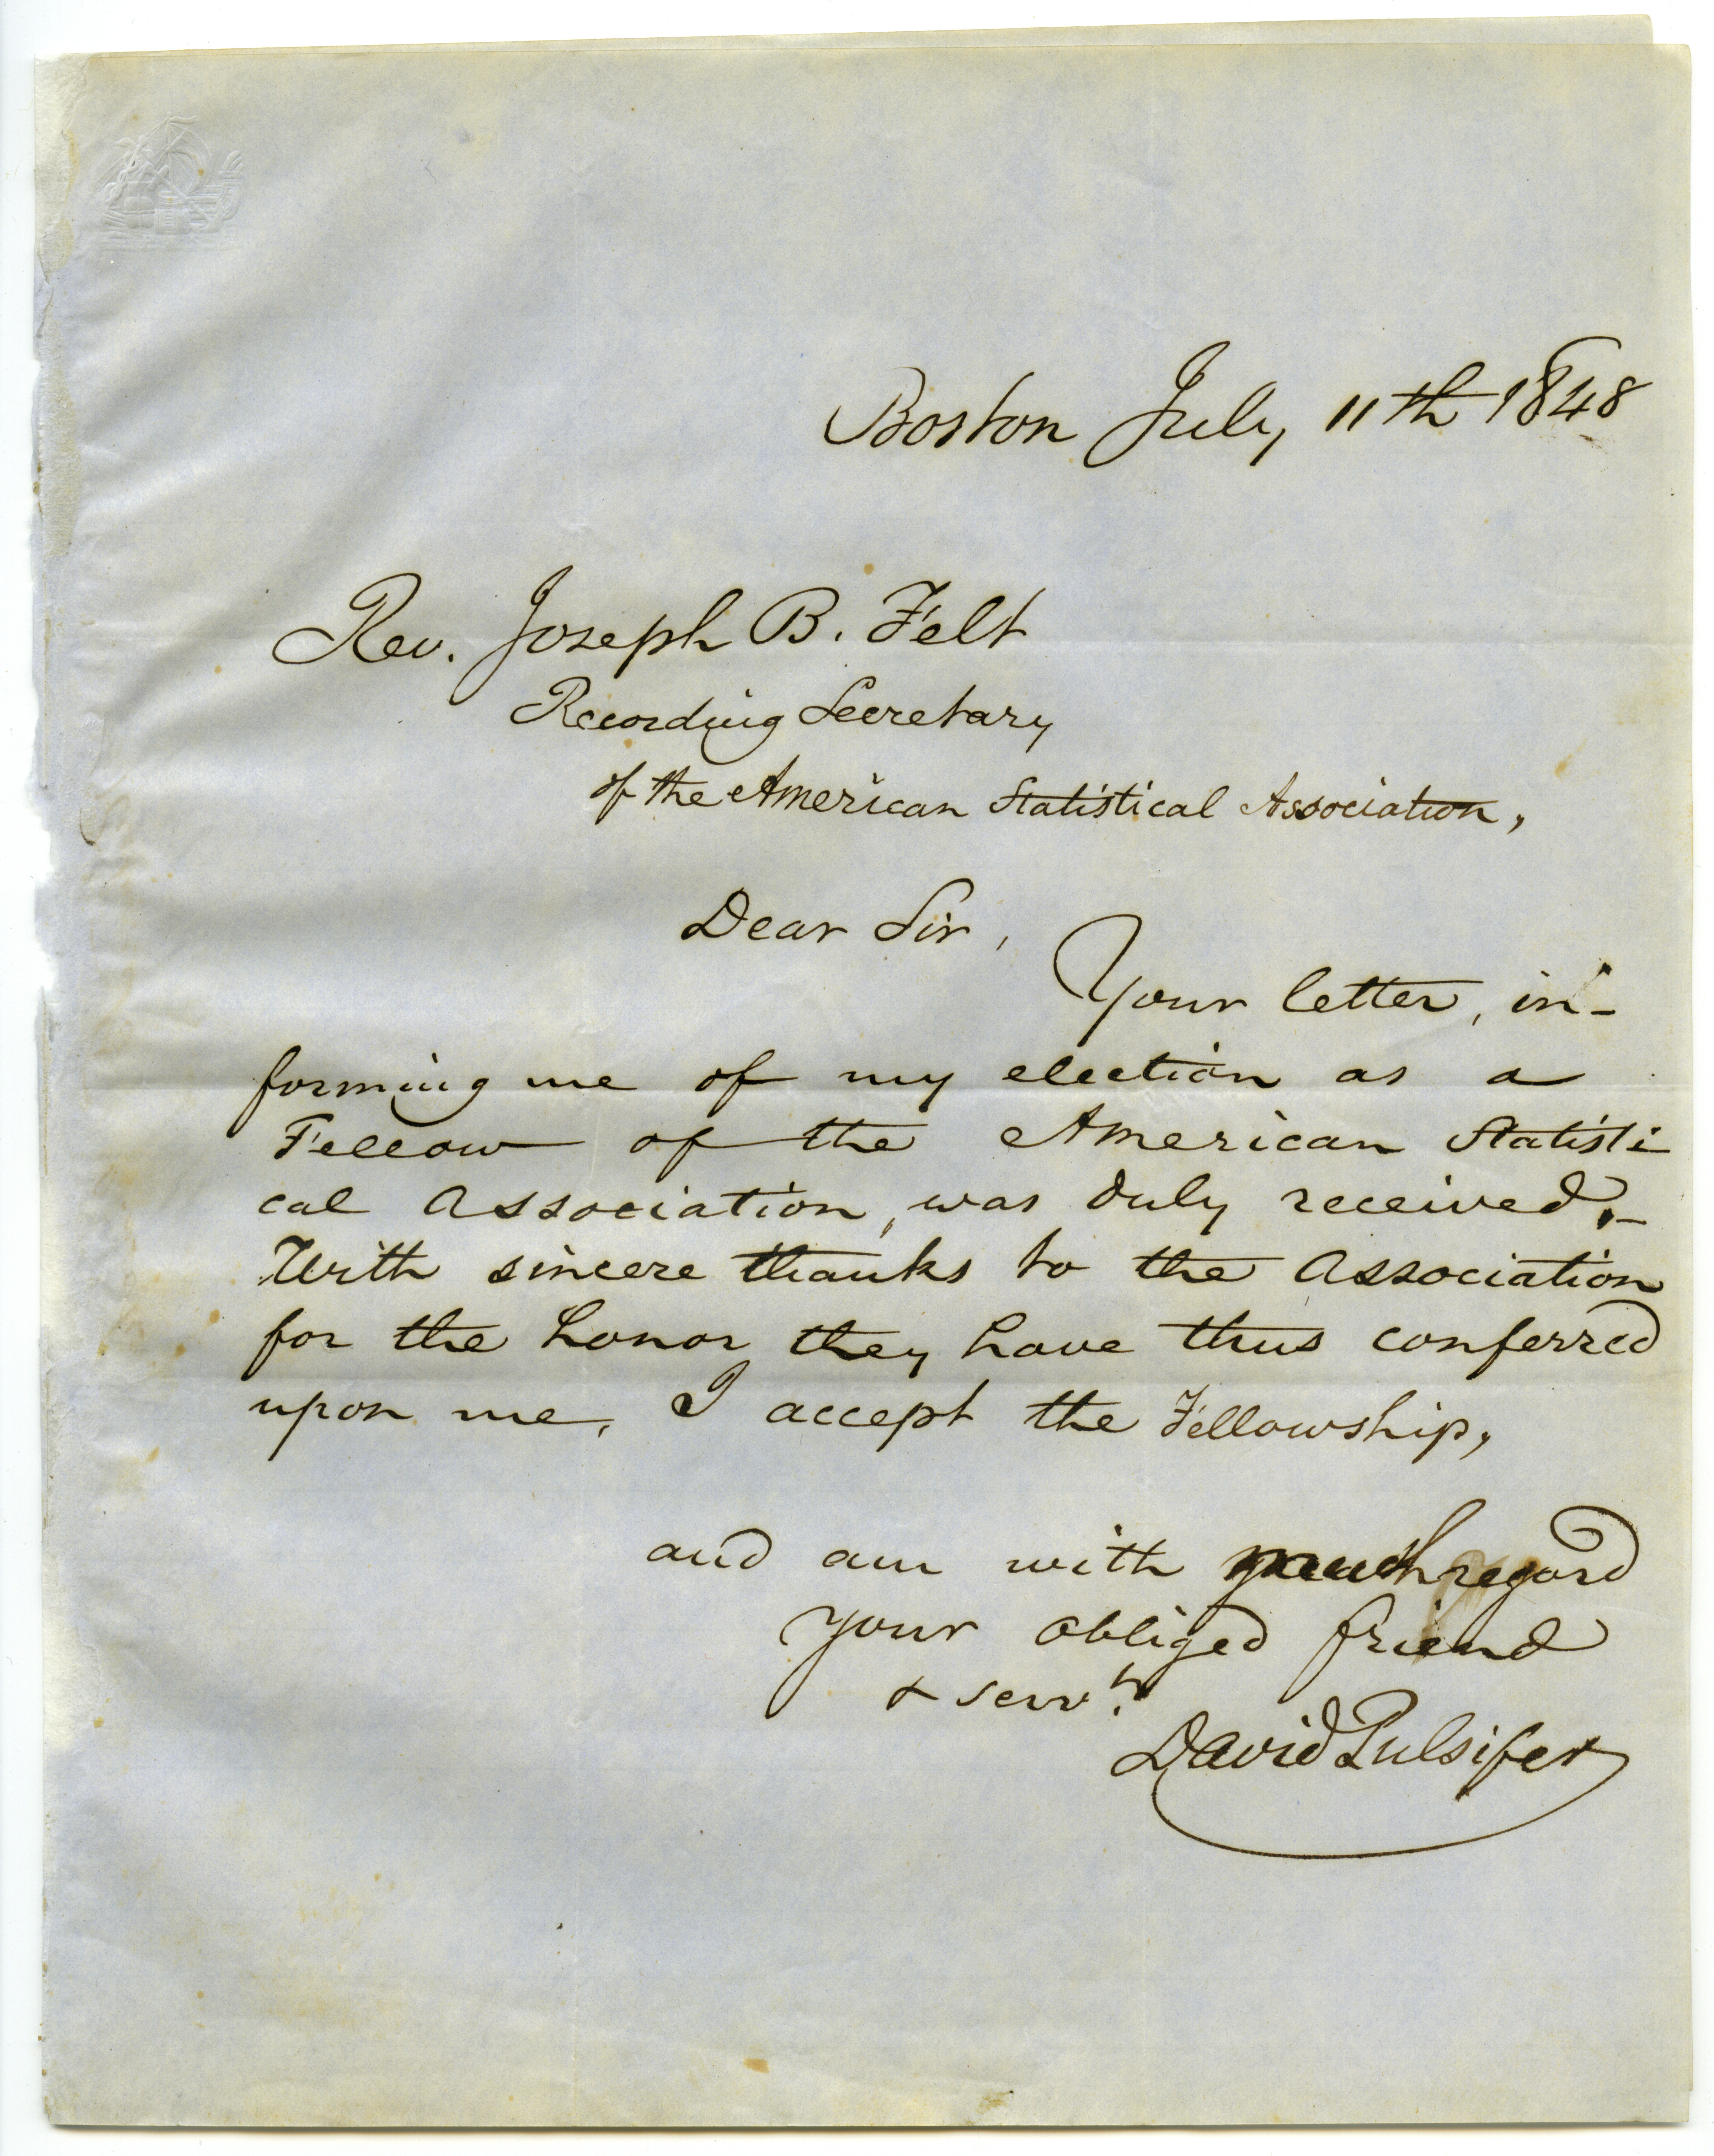 Boston July 11th 1848
Rev. Joseph B. Felt
Recording Secretary
of the American Statistical Association,
Dear Sir,
Your letter, in-
forming me of my election as a
Fellow of the American Statisti
cal Association, was duly received.–
With sincere thanks to the Association
for the honor they have thus conferred
upon me, I accept the Fellowship,
and am with much regard
your obliged friend
& servt.
David Pulsifer